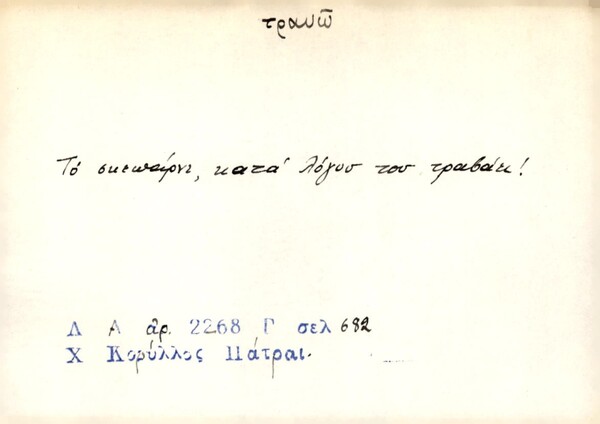 τραυῶ
Τό σκεπάρνι, κατά λόγου του τραβάει!
Λ Α ἀρ. 2268 Γ σελ 682
Χ Κορύλλος Πάτραι.